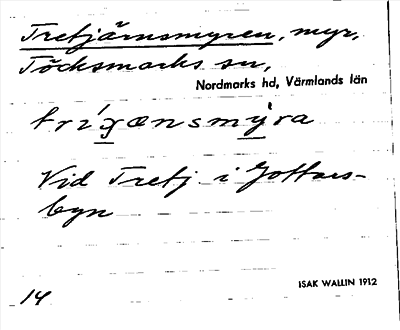 Tretjärnsmyren, myr,
Töcksmarks sn,
Nordmarks hd, Värmlands län
Vid Tretj. i Gottars-
byn
ISAK WALLIN 1912
14